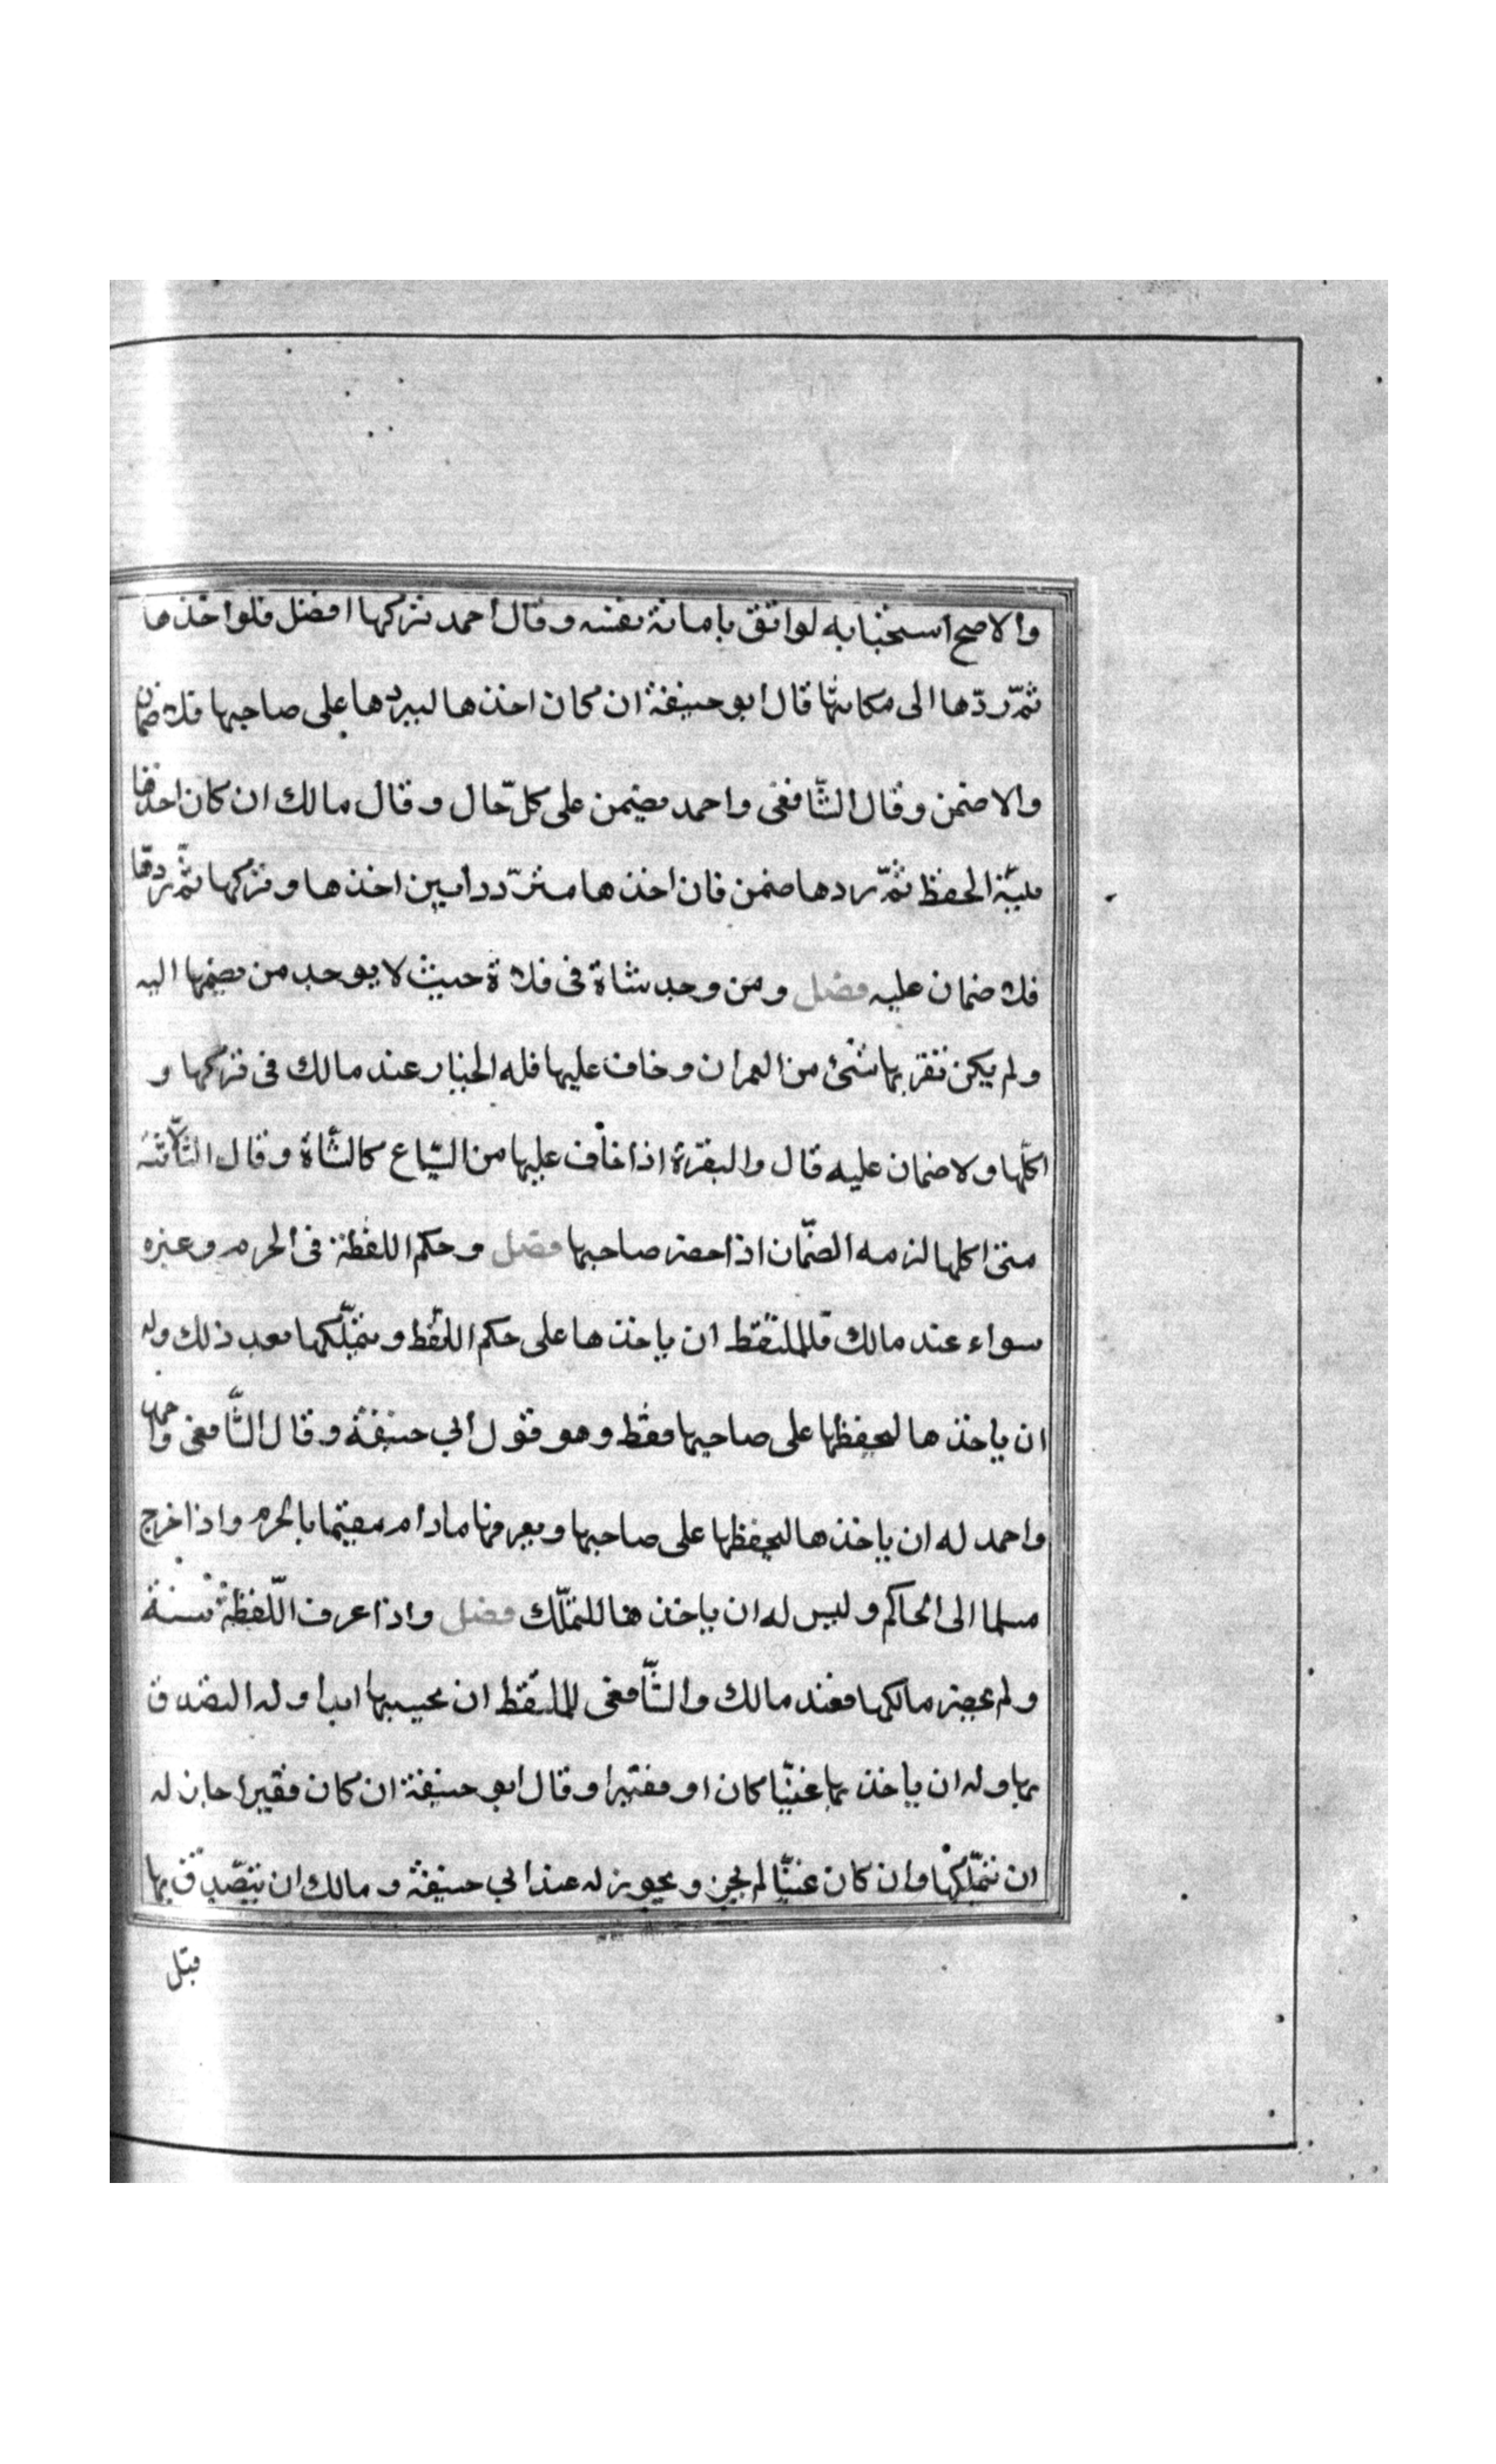 والاصح استحبابه لواثق بامانة نفسه وقال احمد تركها افضل فلو اخذها
ثمّ ردّها الى مكانها قال ابو حنيفة ان كان اخذها ليردها على صاحبها فلا ضمان
والا ضمن وقال الشّافعى واحمد يضمن على كلّ حال وقال مالك ان كان اخذها
بنيّة الحفظ ثمّ ردها ضمن فان اخذها متردّدا بين اخذها وتركها ثمّ ردها
فلا ضمان عليه فصل ومن وجد شاة فى فلاة حيث لا يوجد من يضمها اليه
ولم يكن بقربها شئ من العمران وخاف عليها فله الخيار عند مالك فى تركها و
اكلها ولا ضمان عليه قال والبقرة اذا خاف عليها من السّباع كالشّاة وقال الثّلاثة
متى اكلها لزمه الضّمان اذا حضر صاحبها فصل وحكم اللقطة فى الحرم وغيره
سواء عند مالك فللملتقط ان ياخذها على حكم اللقط ويتملّكها بعد ذلك وله
ان ياخذها ليحفظها على صاحبها فقط وهو قول ابي حنيفة وقال الشّافعى واحمد
واحمد له ان ياخذها ليحفظها على صاحبها ويعرفها ما دام مقيما بالحرم واذا خرج
سلمها الى الحاكم وليس له ان ياخذها للتملّك فصل واذا عرف اللّقطة سنة
ولم يحضر مالكها فعند مالك والشّافعى للملتقط ان يحبسها ابدا وله التصدق
بها وله ان ياخذ بها غنيّا كان او فقيرا وقال ابو حنيفة ان كان فقيرا جاز له
ان يتملّكها وان كان غنيّا لم يجز ويجوز له عند ابي حنيفة ومالك ان يتصّدق بها
قبل